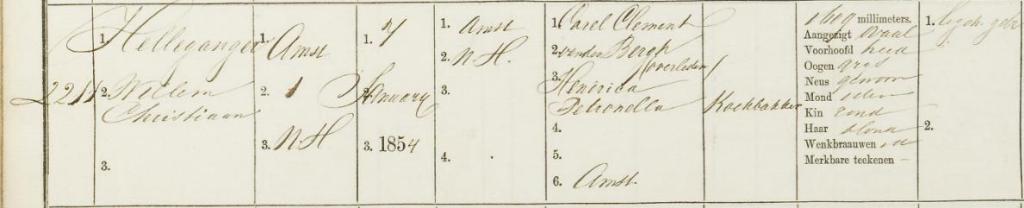 2211
1. Helleganger
2. Willem
Christiaan
3.
1. Amst
2. 1
3. NH
1. 4
2. January
3. 1854
1. Amst
2. N.H.
3.
4.
1. Carel Clement
2. van den Bergh
(overleden)
3. Henrica
Petronella
4.
5.
6. Amst.
Koekbakker
1609 millimeters.
Aangezigt ovaal
Voorhoofd
Oogen grijs
Neus gewoon
Mond idem
Kin rond
Haar blond
Wenkbraauwen id
Merkbare teekenen –
1.
2.